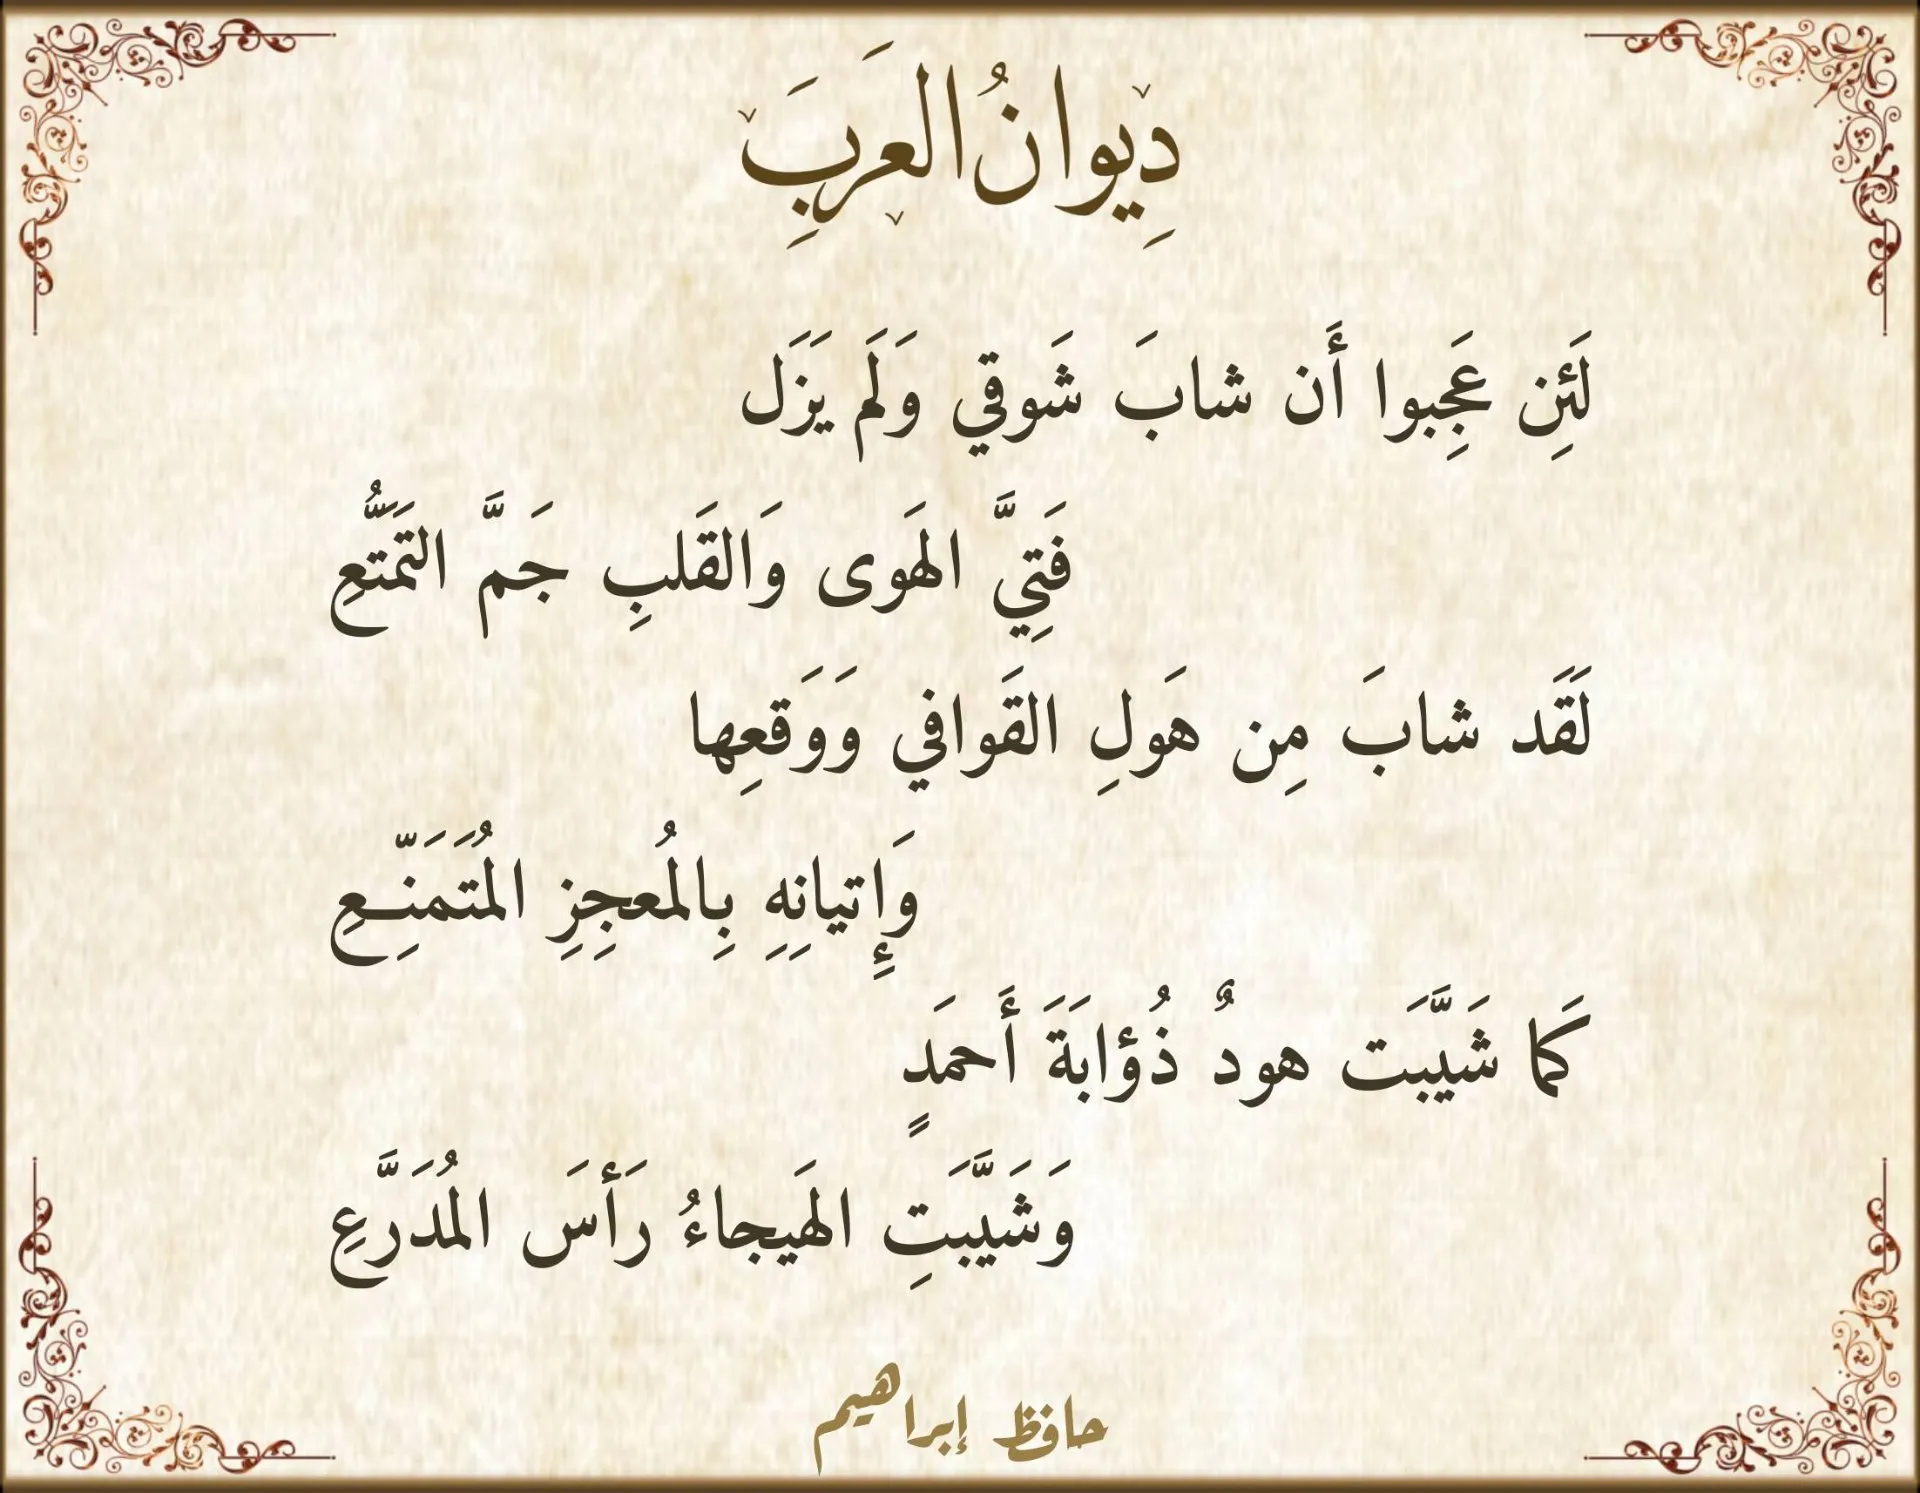 دِيوانُ العَرَبِ
لَئِن عَجِبوا أَن شابَ شَوقي وَلَم يَزَل
فَتِيَّ الهَوى وَالقَلبِ جَمَّ التَمَتُّعِ
لَقَد شابَ مِن هَولِ القَوافي وَوَقعِها
وَإِتيانِهِ بِالمُعجِزِ المُتَمَنِّـعِ
كَما شَيَّبَت هودٌ ذُؤابَةَ أَحمَدٍ
وَشَيَّبَتِ الهَيجاءُ رَأسَ المُدَرَّعِ
حافظ إبراهيم